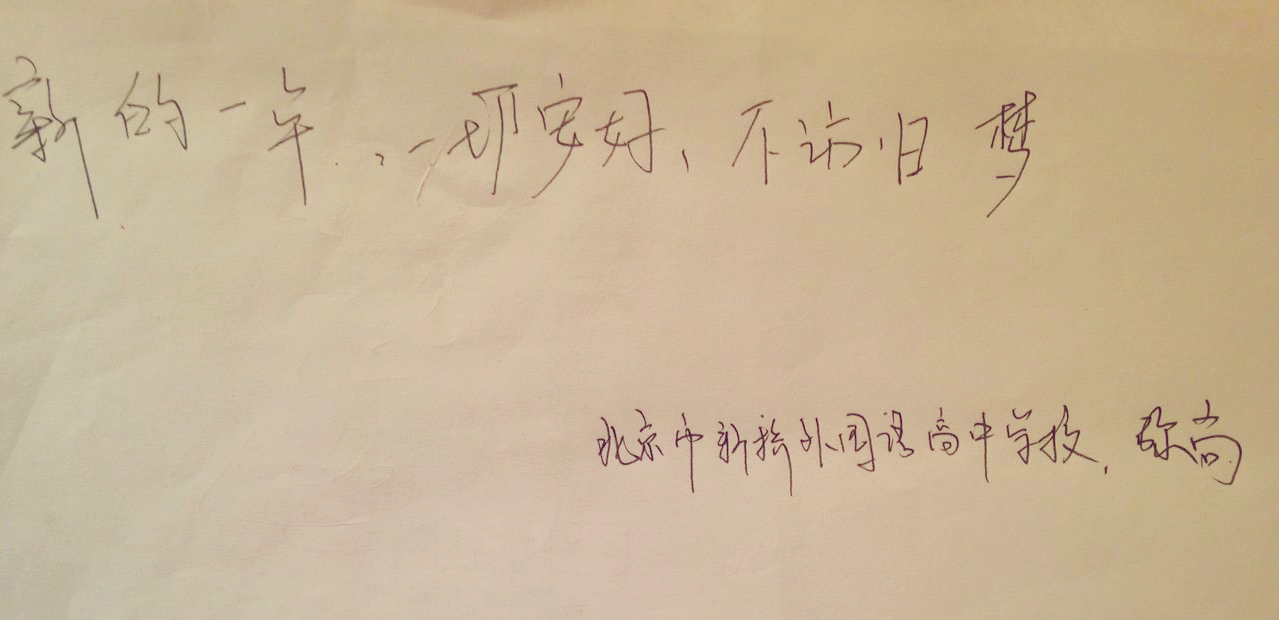 新的一年..，一切安好、不访旧梦
北京市新桥外国语高中学校，尔尚